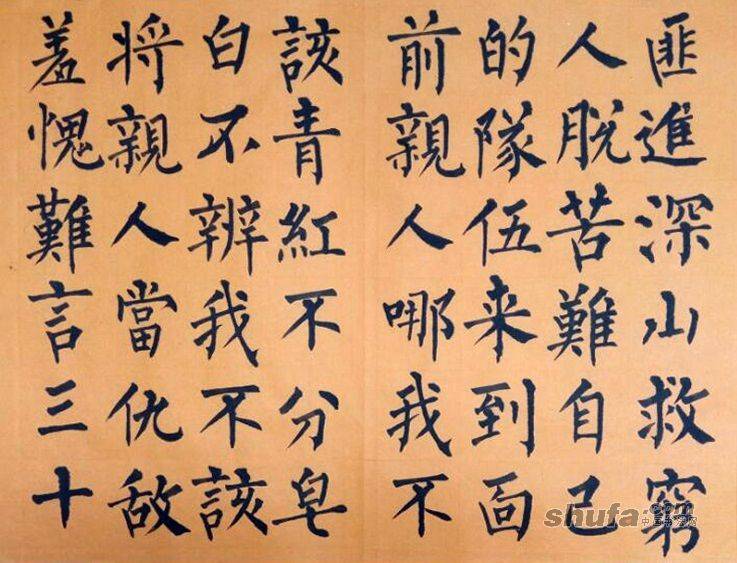 匪進深山救窮
人脱苦難自己
的隊伍来到面
前親人哪我不
該青紅不分皂
白不辨我不該
將親人當仇敌
羞愧難言三十
shufa